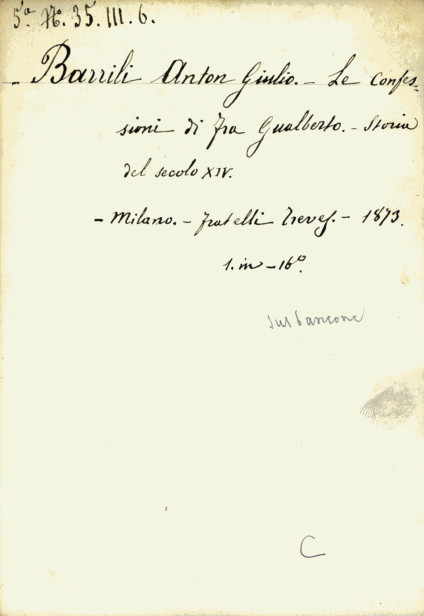 5ª N.º 35. III. 6.
- Barrili Anton Giulio. - Le Confes-
sioni di Fra Gualberto. - Storia
del secolo XIV.
- Milano. - Fratelli Treves. - 1873.
1. in - 16º.
sul bancone
C